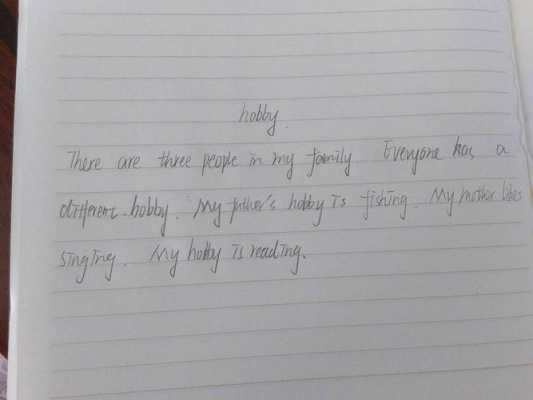 hobby.
There are three people in my family Everyone has a
different hobby. My father's hobby is fishing. My mother likes
singing. My hobby is reading.